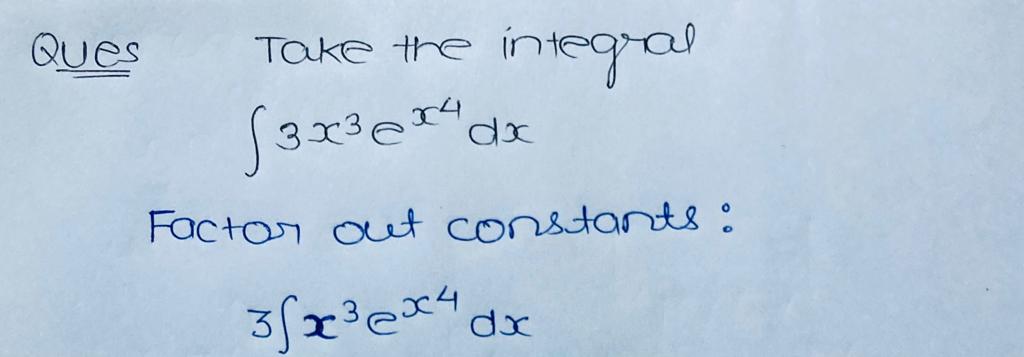 Ques Take the integral
∫3x³eˣ⁴dx
Factor out constants :
3∫x³eˣ⁴dx